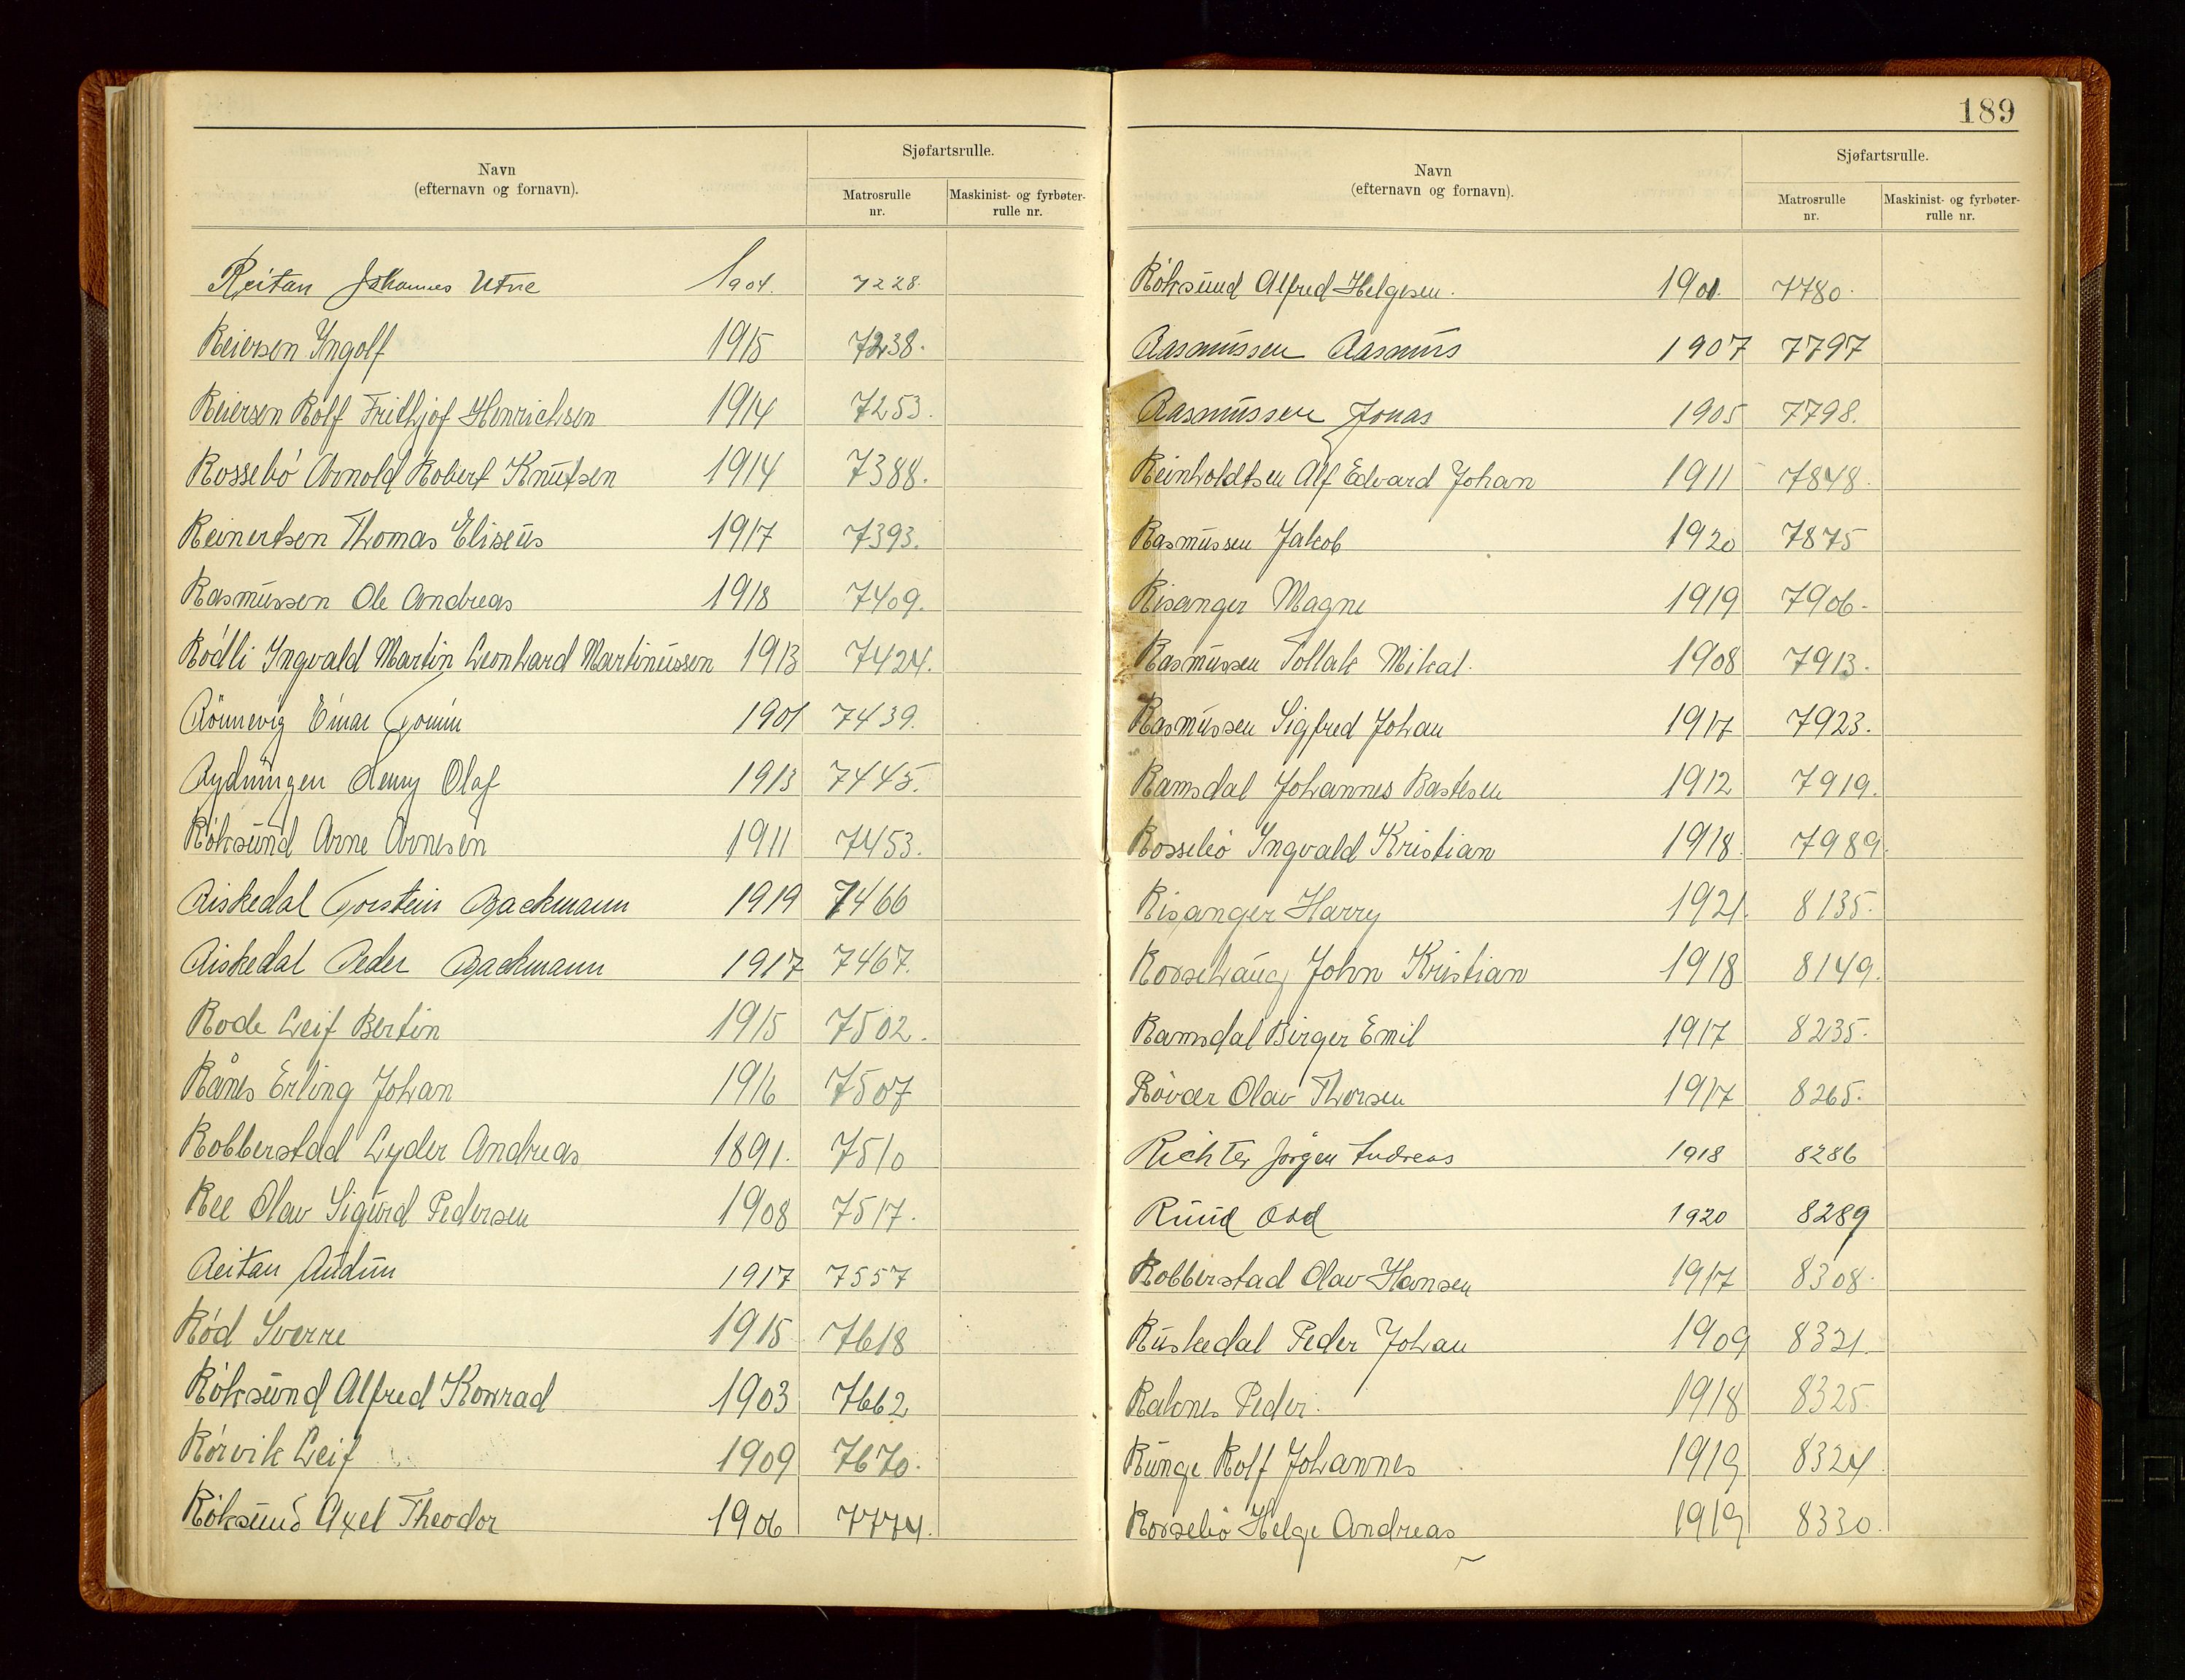 Navn
(efternavn og fornavn).
Sjøfartsrulle.
Matrosrulle
nr.
Maskinist- og fyrbøter-
rulle nr.
Reitan Johannes Utne 1904. 7228.
Reiersen Yngolf 1915 7238.
Reiersen Rolf Frithjof Henrichsen 1914 7253.
Rossebö Arnold Robert Knutsen 1914 7388.
Reinertsen Thomas Eliseus 1917 7393.
Rasmussen Ole Andreas 1918 7409.
Rödli Yngvald Martin Leonhard Martinussen 1913 7424.
Rönnevig Einar Tomin 1901 7439.
Rydningen Henry Olaf 1913 7445.
Röksund Arne Arnesen 1911 7453.
Riskedal Torstein Backmann 1919 7466
Riskedal Peder Backmann 1917 7467.
Rode Leif Bertin 1915 7502.
Rånes Erling Johan 1916 7507
Robberstad Lyder Andreas 1891. 7510
Ree Olav Sigurd Pedersen 1908 7517.
Reitan Audun 1917 7557
Röd Sverre 1915 7618
Röksund Alfred Konrad 1903 7662
Rörvik Leif 1909 7670.
Röksund Axel Theodor 1906 7774.
189
Navn
(efternavn og fornavn).
Sjøfartsrulle.
Matrosrulle
nr.
Maskinist- og fyrbøter-
rulle nr.
Röksund Alfred Helgesen. 1901. 7780.
Rasmussen Rasmus 1907 7797
Rasmussen Jonas 1905 7798.
Reinholdtsen Alf Edvard Johan 1911 7848.
Rasmussen Jakob 1920 7875
Risanger Magne 1919 7906.
Rasmussen Tollak Mikal. 1908 7913.
Rasmussen Sigfred Johan 1917 7923.
Ramsdal Johannes Bastesen 1912 7919.
Rossebö Yngvald Kristian 1918. 7989.
Risanger Harry 1921. 8135.
Rossehaug John Kristian 1918 8149.
Ramsdal Birger Emil 1917 8235.
Rövær Olav Thorsen 1917 8265.
Richter Jörgen Andreas 1918 8286
Ruud Odd 1920 8289
Robberstad Olav Hansen 1917 8308.
Ruskedal Peder Johan 1909 8321.
Raknes Peder. 1918 8325.
Runge Rolf Johannes 1919 8324.
Rossebö Helge Andreas 1919 8330.